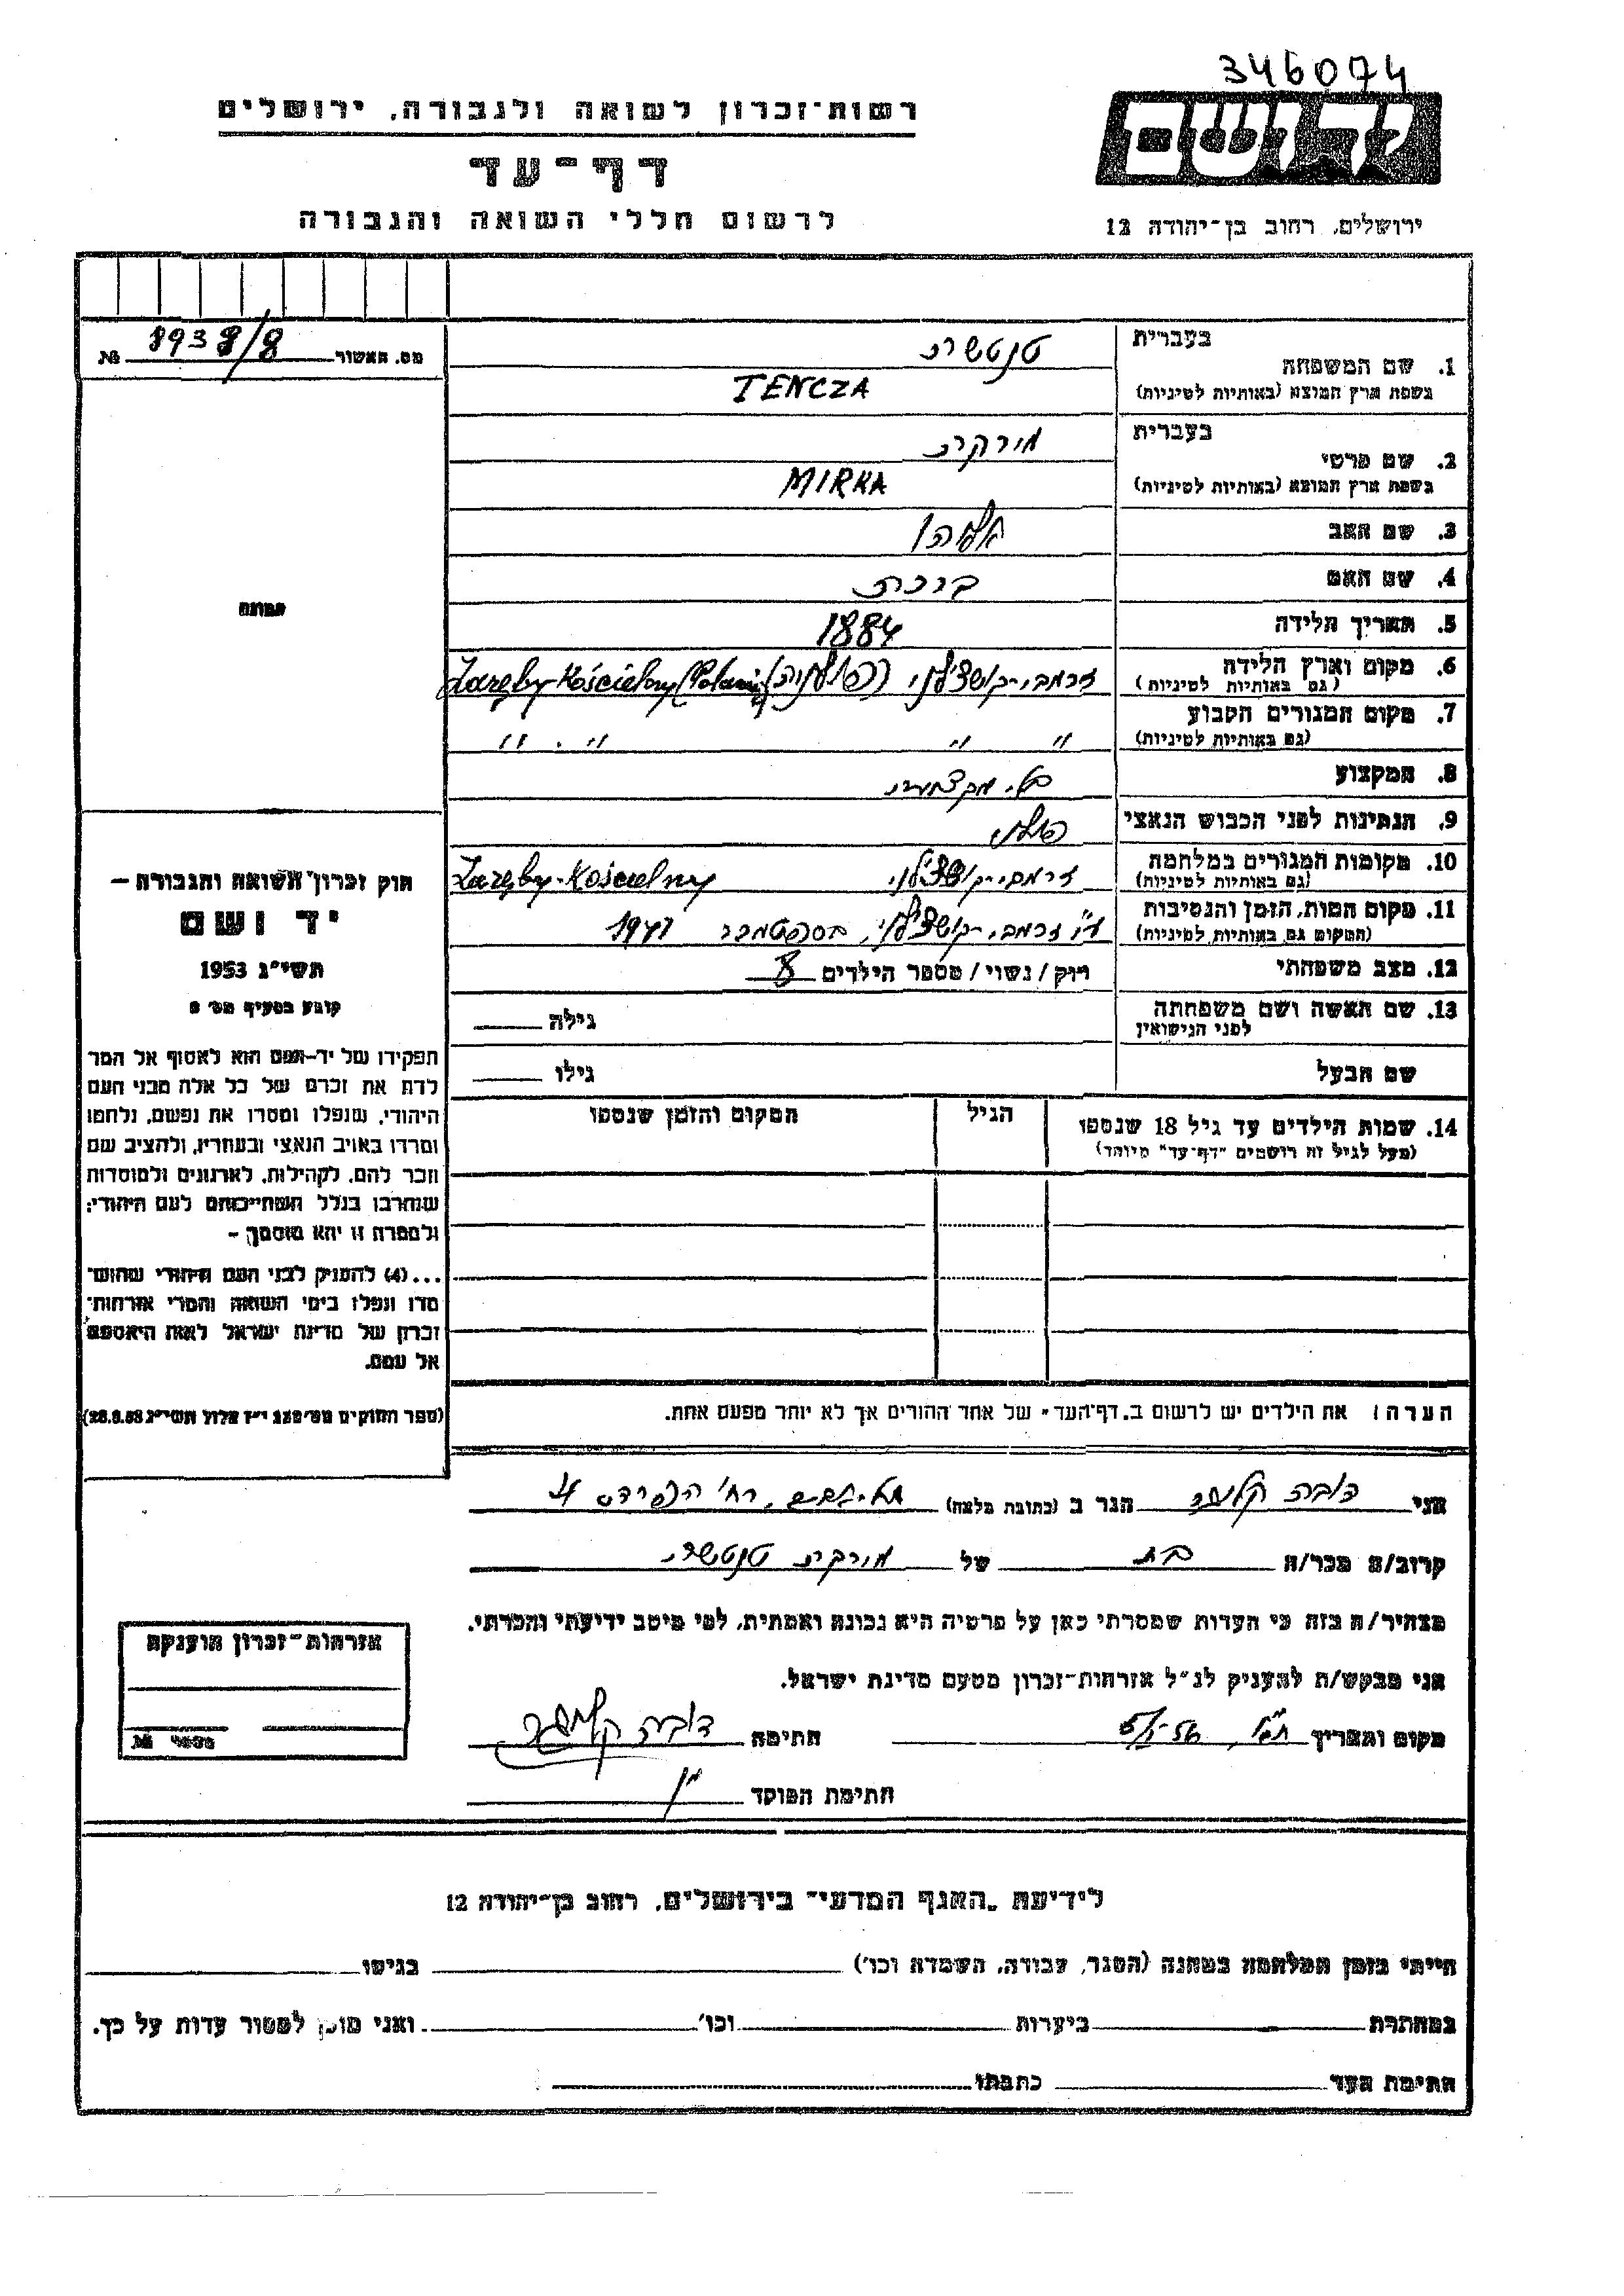 346074
יד ושם
רשות-זכרון לשואה ולגבורה, ירושלים
דף-עד
לרשום חללי השואה והגבורה
ירושלים, רחוב בן-יהודה 12
מס. האשור 8938/8 №
בעברית
1. שם המשפחה
בשפת ארץ המוצא (באותיות לטיניות)
TENCZA
בעברית
2. שם פרטי
בשפת ארץ המוצא (באותיות לטיניות)
MIRKA
3. שם האב אליהו
4. שם האם ברכה
5. תאריך הלידה 1884
6. מקום וארץ הלידה Zaręby-Kościelny
(גם באותיות לטיניות)
7. מקום המגורים הקבוע " " " . "
(גם באותיות לטיניות)
8. המקצוע בלי מקצוע
9. הנתינות לפני הכבוש הנאצי פולני
10. מקומות המגורים במלחמה Zaręby-Kościelny
(גם באותיות לטיניות)
11. מקום המות, הזמן והנסיבות בספטמבר 1941
(המקום גם באותיות לטיניות)
12. מצב משפחתי רוק/נשוי/מספר הילדים 8
13. שם האשה ושם משפחתה גילה
לפני הנישואין
שם הבעל גילו
14. שמות הילדים עד גיל 18 שנספו הגיל המקום והזמן שנספו
(מעל לגיל זה רושמים "דף-עד" מיוחד)
הערה: את הילדים יש לרשום ב"דף-העד" של אחד ההורים אך לא יותר מפעם אחת.
תמונה
חוק זכרון השואה והגבורה –
יד ושם
תשי"ג 1953
קובע בסעיף מס' 2
תפקידו של יד-ושם הוא לאסוף אל המו
לדת את זכרם של כל אלה מבני העם
היהודי, שנפלו ומסרו את נפשם, נלחמו
ומרדו באויב הנאצי ובעוזריו, ולהציב שם
וזכר להם, לקהילות, לארגונים ולמוסדות
שנחרבו בגלל השתייכותם לעם היהודי;
ולמטרה זו יהא מוסמך –
...(4) להעניק לבני העם היהודי שהוש־
מדו ונפלו בימי השואה והמרי אזרחות־
זכרון של מדינת ישראל לאות היאספם
אל עמם.
(ספר החוקים י"ז אלול תשי"ג 28.8.53)
אני דובה הגר ב (כתובת מלאה) רח' הפרדס 4
קרוב/ה מכר/ה בת של
מצהיר/ה בזה כי העדות שמסרתי כאן על פרטיה היא נכונה ואמתית, לפי מיטב ידיעתי והכרתי.
אני מבקש/ת להעניק לנ"ל אזרחות-זכרון מטעם מדינת ישראל.
מקום ותאריך חתימה דובה
חתימת הפוקד
אזרחות-זכרון הוענקה
№
לידיעת "האגף המדעי" בירושלים, רחוב בן-יהודה 12
הייתי בזמן המלחמה במחנה (הסגר, עבודה, השמדה וכו') בגיטו
במחתרת ביערות וכו' ואני מוכן למסור עדות על כך.
חתימת העד כתבתו